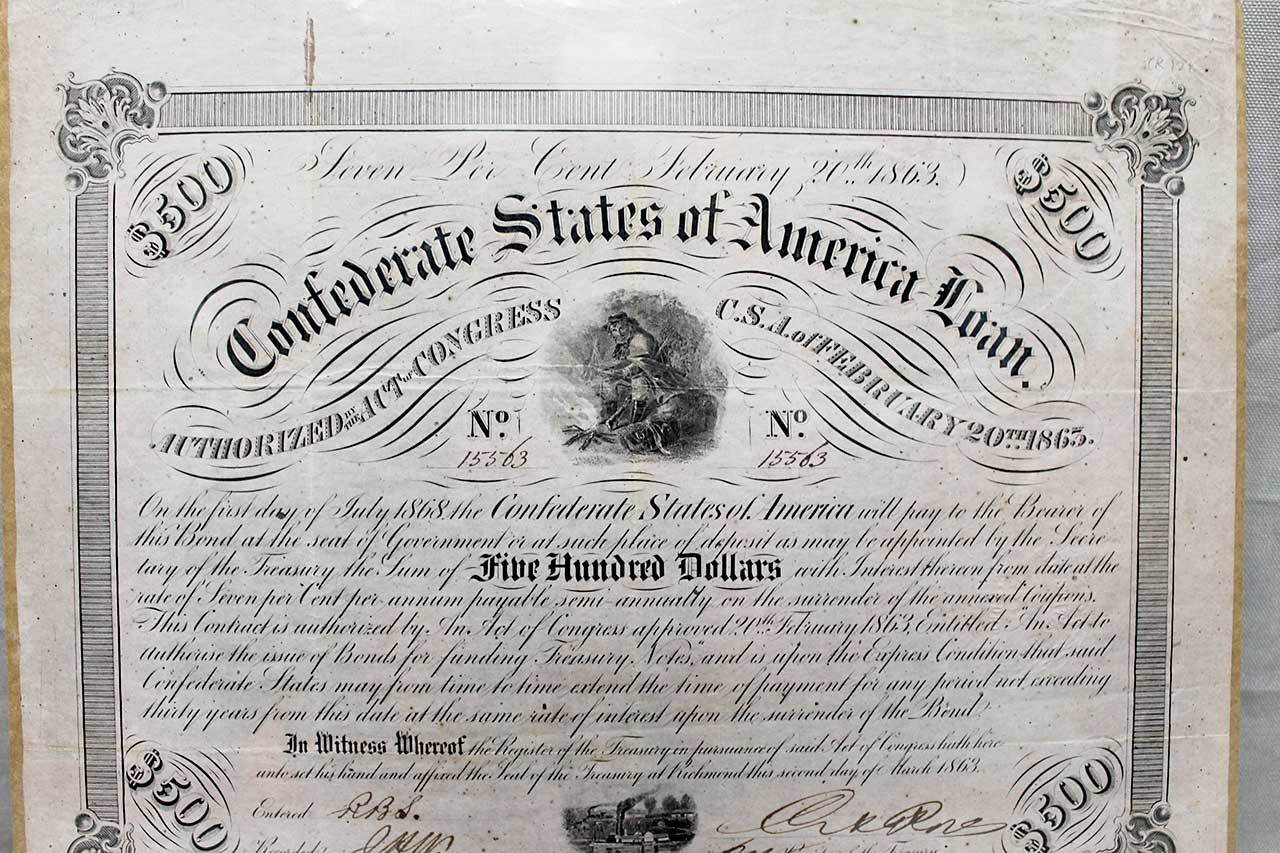 $500
Seven Per Cent February 20th 1863.
$500
Confederate States of America Loan.
AUTHORIZED BY THE ACT OF CONGRESS
C.S.A. of FEBRUARY 20TH 1863.
No.
15563
No.
15563
On the first day of July 1868, the Confederate States of America will pay to the Bearer of
this Bond at the seat of Government or at such place of deposit as may be appointed by the Secre-
tary of the Treasury the Sum of Five Hundred Dollars with Interest thereon from date at the
rate of Seven per Cent per annum payable semi-annually on the surrender of the annexed Coupons.
This Contract is authorized by An Act of Congress approved 20th February 1863, Entitled "An Act to
authorise the issue of Bonds for funding Treasury Notes," and is upon the Express Condition that said
Confederate States may from time to time extend the time of payment for any period not exceeding
thirty years from this date at the same rate of interest upon the surrender of the Bond.
In Witness Whereof the Register of the Treasury in pursuance of said Act of Congress hath here-
unto set his hand and affixed the Seal of the Treasury at Richmond this second day of March 1863.
$500
$500
Entered R.B.S.
Recorded
Treasury